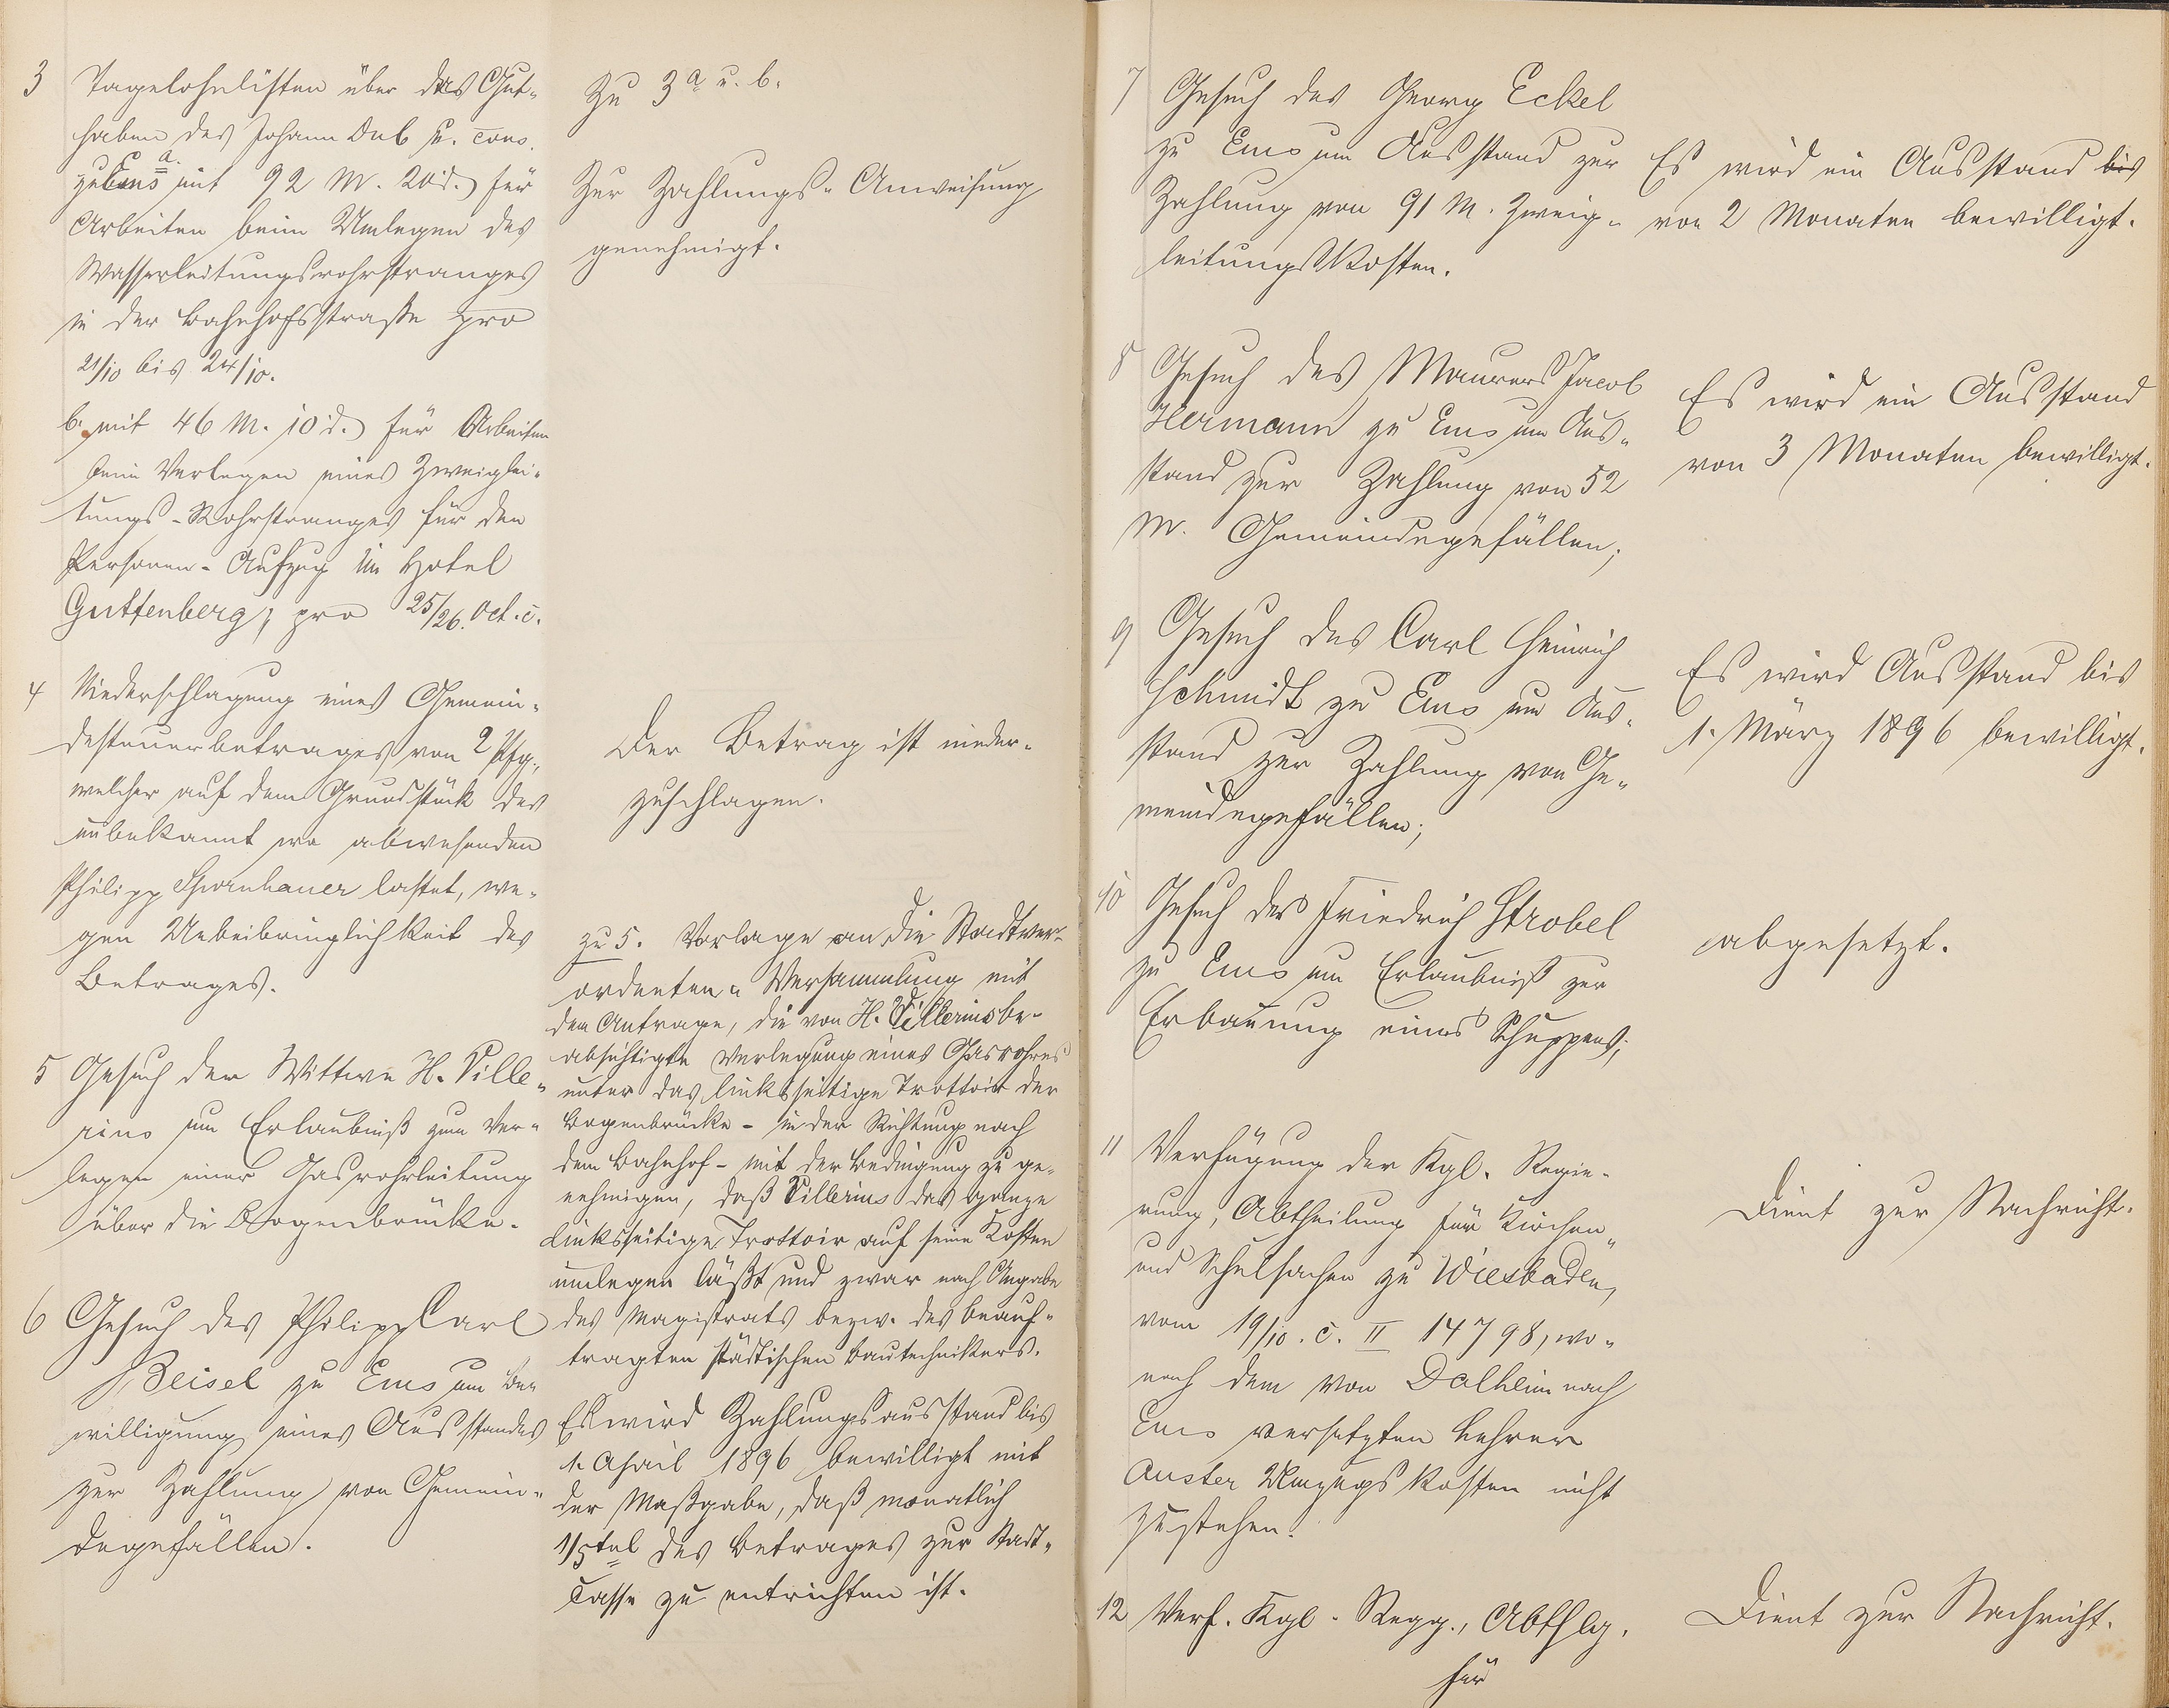 3 Tagelohnlisten über das Gut-
haben des Johann Dub u. cons.
zu Ems a. mit 92 M. 20 d. für
Arbeiten beim Umlegen des
Wasserleitungsrohrstranges
in der Bahnhofsstraße pro
21/10 bis 24/10.
b. mit 46 M. 10 d. für Arbeiten
beim Verlegen eines Zweiglei-
tungs-Rohrstranges für den
Personen-Aufzug im Hotel
Guttenberg, pro 25/26. Oct. c.
Zu 3 a u. b.
Zur Zahlungs-Anweisung
genehmigt.
4 Niederschlagung eines Gemein-
desteuerbetrages von 2 Pfg.,
welcher auf dem Grundstück des
unbekannt wo abwesenden
Philipp Thornhauer lastet, we-
gen Unbeibringlichkeit des
Betrages.
Der Betrag ist nieder-
zuschlagen.
5 Gesuch der Wittwe H. Ville-
rius um Erlaubniß zum Ver-
legen einer Gasrohrleitung
über die Bogenbrücke.
zu 5. Vorlage an die Stadtver-
ordneten-Versammlung mit
dem Antrage, die von H. Villerius be-
absichtigte Verlegung eines Gasrohres
unter das linksseitige Trottoir der
Bogenbrücke - in der Richtung nach
dem Bahnhof - mit der Bedingung zu ge-
nehmigen, daß Villerius das ganze
linksseitige Trottoir auf seine Kosten
umlegen läßt und zwar nach Angabe
des Magistrats bezw. des beauf-
tragten städtischen Bautechnikers.
6 Gesuch des Philipp Carl
Beisel zu Ems um Be-
willigung eines Ausstandes
zur Zahlung von Gemein-
degefällen.
Es wird Zahlungsausstand bis
1. April 1896 bewilligt mit
der Maßgabe, daß monatlich
1/5tel des Betrages zur Stadt-
Casse zu entrichten ist.
7 Gesuch des Georg Eckel
zu Ems um Ausstand zur
Zahlung von 91 M. Zweig-
leitungskosten.
Es wird ein Ausstand bis
von 2 Monaten bewilligt.
8 Gesuch des Maurers Jacob
Hermann zu Ems um Aus-
stand zur Zahlung von 52
M. Gemeindegefällen;
Es wird ein Ausstand
von 3 Monaten bewilligt.
9 Gesuch des Carl Heinrich
Schmidt zu Ems um Aus-
stand zur Zahlung von Ge-
meindegefällen;
Es wird Ausstand bis
1. März 1896 bewilligt.
10 Gesuch des Friedrich Strobel
zu Ems um Erlaubniß zur
Erbauung eines Schuppens;
abgesetzt.
11 Verfügung der Kgl. Regie-
rung, Abtheilung für Kirchen-
und Schulsachen zu Wiesbaden,
vom 19/10. c. II 14798, wo-
nach dem von Dalheim nach
Ems versetzten Lehrer
Auster Umzugskosten nicht
zustehen.
Dient zur Nachricht.
12 Verf. Kgl. Regg., Abthlg.
für
Dient zur Nachricht.